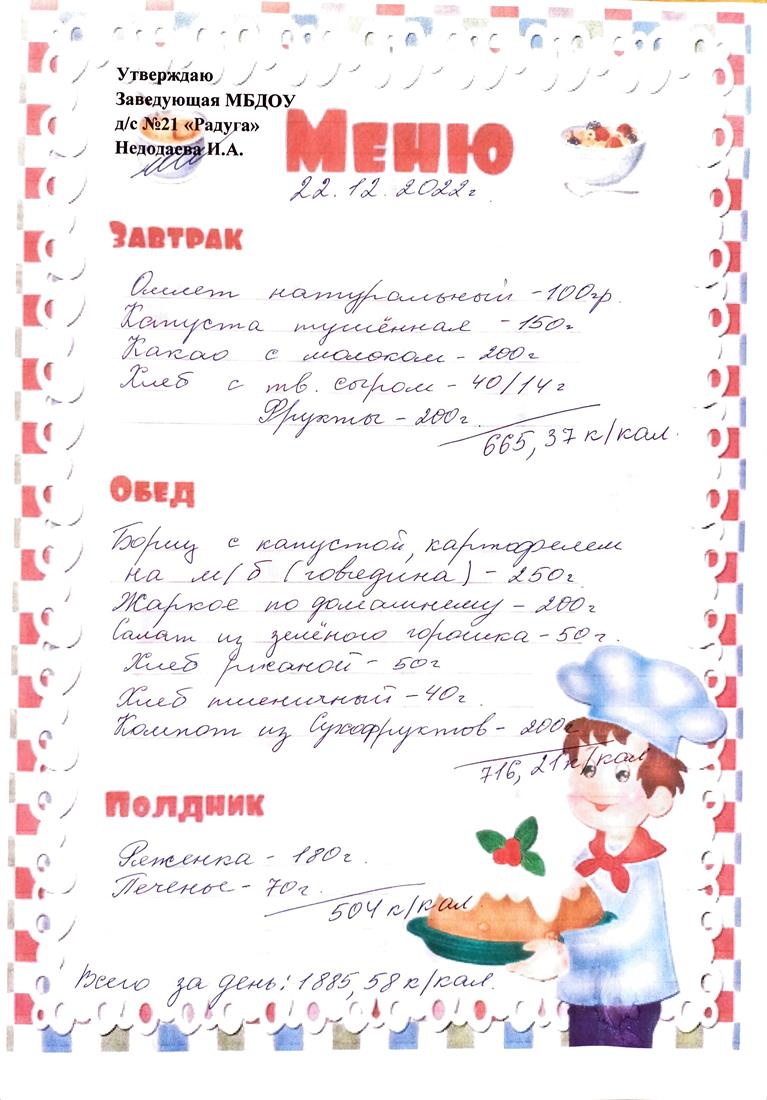 Утверждаю
Заведующая МБДОУ
д/с №21 «Радуга»
Недодаева И.А.
Меню
22.12.2022г.
Завтрак
Омлет натуральный - 100гр.
Капуста тушённая - 150г
Какао с молоком - 200г
Хлеб с тв. сыром - 40/14г
Фрукты - 200г.
665,37 к/кал.
Обед
Борщ с капустой, картофелем
на м/б (говядина) - 250г.
Жаркое по домашнему - 200г
Салат из зелёного горошка - 50г.
Хлеб ржаной - 50г
Хлеб пшеничный - 40г.
Компот из Сухофруктов - 200г
716,21 к/кал
Полдник
Ряженка - 180г.
Печенье - 70г.
504 к/кал
Всего за день: 1885,58 к/кал.